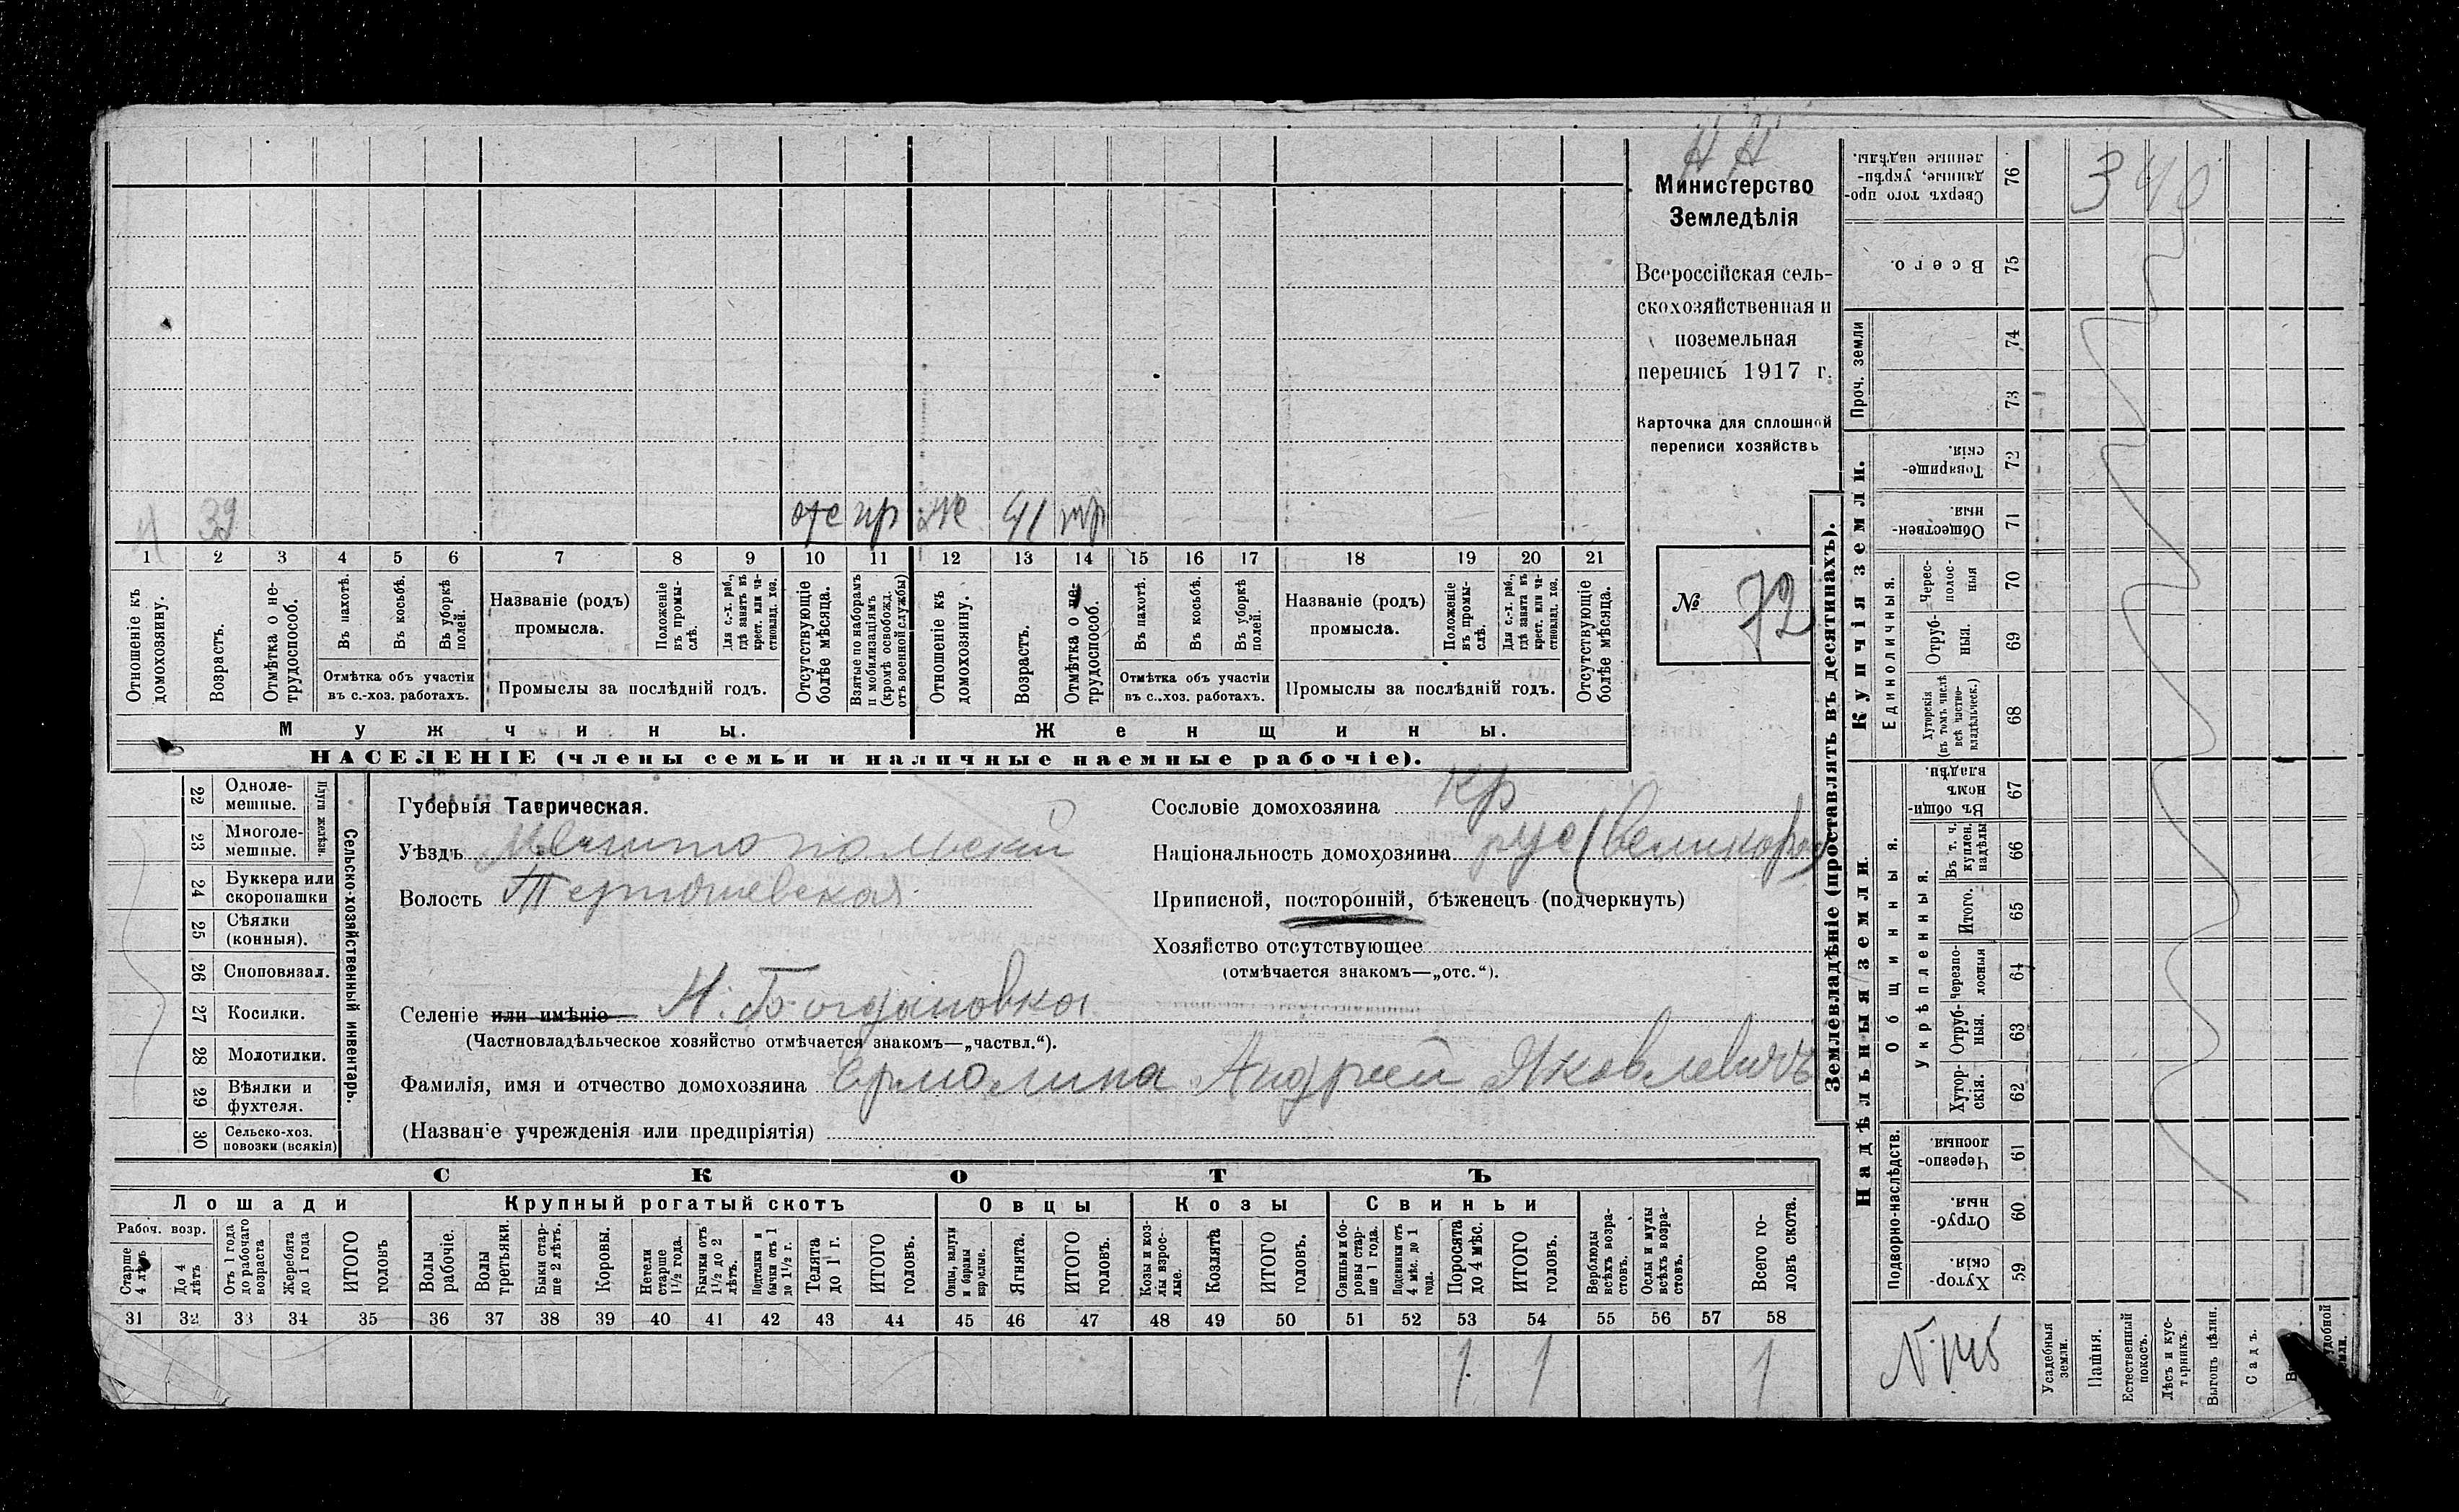 Н Н
Министерство
Земледѣлія
Всероссійская сель-
скохозяйственная и
поземельная
перепись 1917 г.
Карточка для сплошной
переписи хозяйствъ
№ 72
39 отс пр же 41 тр
1 2 3 4 5 6 7 8 9 10 11 12 13 14 15 16 17 18 19 20 21
Отношеніе къ домохозяину.
Возрастъ.
Отмѣтка о не-трудоспособ.
Въ пахотѣ.
Въ косьбѣ.
Въ уборкѣ полей.
Отмѣтка объ участіи
въ с.-хоз. работахъ.
Названіе (родъ)
промысла.
Положеніе въ промы-слѣ.
Для с.-х. раб., гдѣ занятъ въ крест. или ча-стновлад. хоз.
Промыслы за послѣдній годъ.
Отсутствующіе болѣе мѣсяца.
Взятые по наборамъ и мобилизаціямъ (кромѣ освобожд. отъ военной службы)
Отношеніе къ домохозяину.
Возрастъ.
Отмѣтка о не-трудоспособ.
Въ пахотѣ.
Въ косьбѣ.
Въ уборкѣ полей.
Отмѣтка объ участіи
въ с.-хоз. работахъ.
Названіе (родъ)
промысла.
Положеніе въ промы-слѣ.
Для с.-х. раб., гдѣ занята въ крест. или ча-стновлад. хоз.
Промыслы за послѣдній годъ.
Отсутствующіе болѣе мѣсяца.
Мужчины. Женщины.
НАСЕЛЕНІЕ (члены семьи и наличные наемные рабочіе).
Сельско-хозяйственный инвентарь.
Плуги желѣзн.
22 Одноле-мешные.
23 Многоле-мешные.
24 Буккера или скоропашки
25 Сѣялки (конныя).
26 Сноповязал.
27 Косилки.
28 Молотилки.
29 Вѣялки и фухтеля.
30 Сельско-хоз. повозки (всякія)
Губернія Таврическая.
Уѣздъ Мелитопольскій
Волость
Селеніе или имѣніе Н. Богдановка
(Частновладѣльческое хозяйство отмѣчается знакомъ—„частвл.“).
Фамилія, имя и отчество домохозяина Ермолина Андрей Яковлевичъ
(Названіе учрежденія или предпріятія)
Сословіе домохозяина кр
Національность домохозяина рус (великорос)
Приписной, посторонній, бѣженецъ (подчеркнуть)
Хозяйство отсутствующее
(отмѣчается знакомъ—„отс.“).
СКОТЪ
Лошади Крупный рогатый скотъ Овцы Козы Свиньи
Рабоч. возр.
Старше 4 лѣтъ
До 4 лѣтъ
Отъ 1 года до рабочаго возраста
Жеребята до 1 года
ИТОГО головъ
Волы рабочіе.
Волы третьяки.
Быки стар-ше 2 лѣтъ.
Коровы.
Нетели старше 1½ года.
Бычки отъ 1½ до 2 лѣтъ.
Подтёлки и бычки отъ 1 до 1½ г.
Телята до 1 г.
ИТОГО головъ.
Овцы, валухи и бараны взрослые.
Ягнята.
ИТОГО головъ.
Козы и коз-лы взрос-лые.
Козлята
ИТОГО головъ.
Свиньи и бо-ровы стар-ше 1 года.
Подсвинки отъ 4 мѣс. до 1 года.
Поросята до 4 мѣс.
ИТОГО головъ.
Верблюды всѣхъ возра-стовъ.
Ослы и мулы всѣхъ возра-стовъ.
Всего го-ловъ скота.
31 32 33 34 35 36 37 38 39 40 41 42 43 44 45 46 47 48 49 50 51 52 53 54 55 56 57 58
1 1 1
Землевладѣніе (проставлять въ десятинахъ).
Купчія земли.
Надѣльныя земли.
Проч. земли
Единоличныя.
Общинныя.
Укрѣпленныя.
Подворно-наслѣдств.
Сверхъ того про-данные, укрѣп-ленные надѣлы. 76
340
Всего. 75
74
73
Товарище-скія. 72
Обществен-ныя. 71
Черес-полос-ныя 70
Отруб-ныя. 69
Хуторскія (въ томъ числѣ всѣ частно-владѣльческ.) 68
Въ общин-номъ владѣн. 67
Въ т. ч. куплен. надѣлы 66
Итого. 65
Черезпо-лосныя 64
Отруб-ныя. 63
Хутор-скія. 62
Черезпо-лосныя 61
Отруб-ныя. 60
Хутор-скія. 59
Усадебныя земли.
Пашня.
Естественный покосъ.
Лѣсъ и кус-тарникъ.
Выгонъ цѣлин.
Садъ.